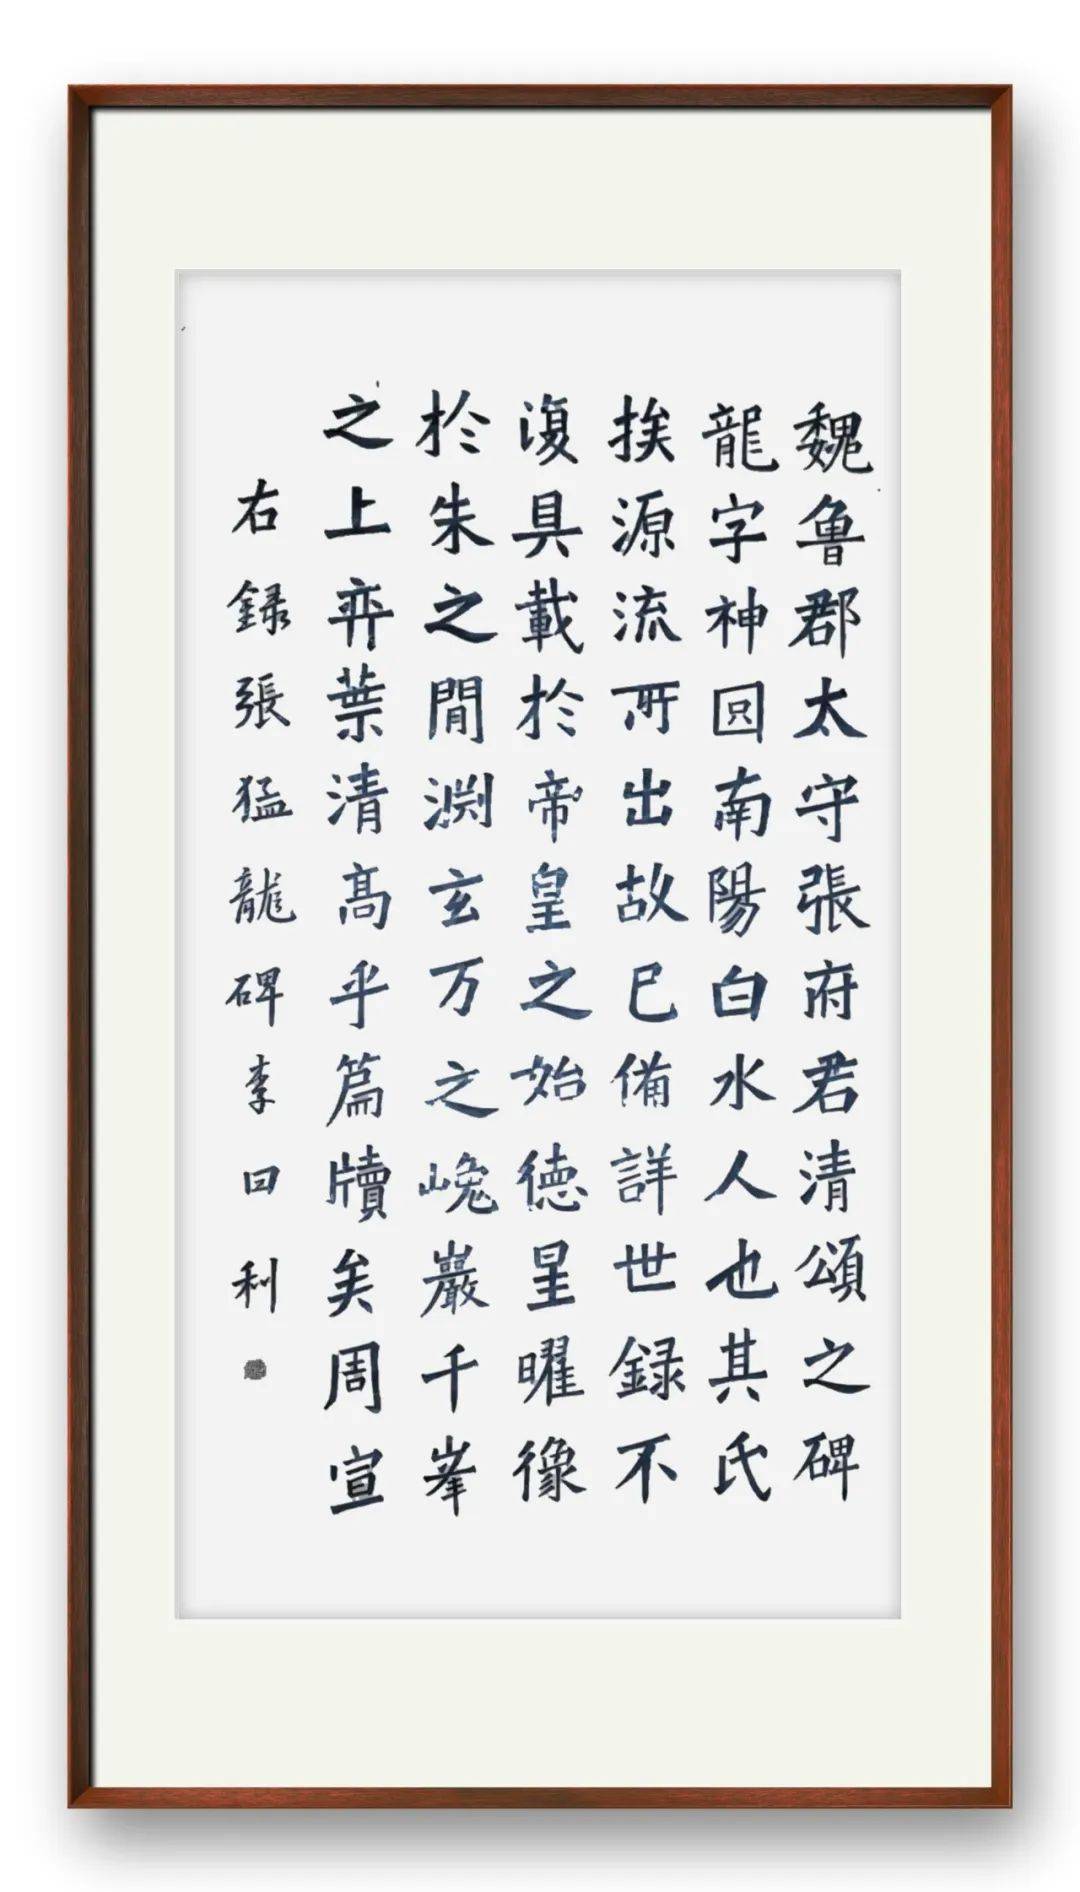 魏魯郡太守張府君清頌之碑
龍字神囧南陽白水人也其氏
挨源流所出故已備詳世録不
復具載於帝皇之始德星曜像
於朱之間淵玄万之巉巖千峯
之上弈葉清高乎篇牘矣周宣
右録張猛龍碑李曰利